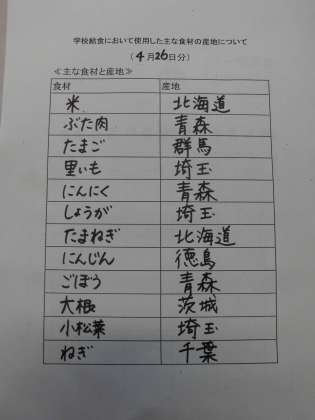 学校給食において使用した主な食材の産地について
(4月26日分)
≪主な食材と産地≫
食材 産地
米 北海道
ぶた肉 青森
たまご 群馬
里いも 埼玉
にんにく 青森
しょうが 埼玉
たまねぎ 北海道
にんじん 徳島
ごぼう 青森
大根 茨城
小松菜 埼玉
ねぎ 千葉